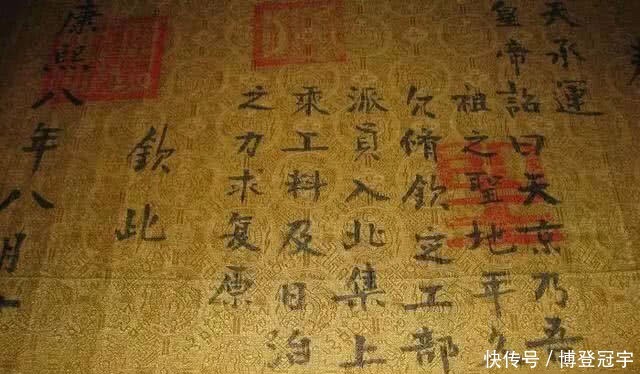 天承運
皇帝詔曰天京乃吾
祖之聖地年久
欠脩欽定工部
派員入北集上
乘工料及日泊
之力求复原
欽此
康熙八年八月十
快传号 / 博登冠宇